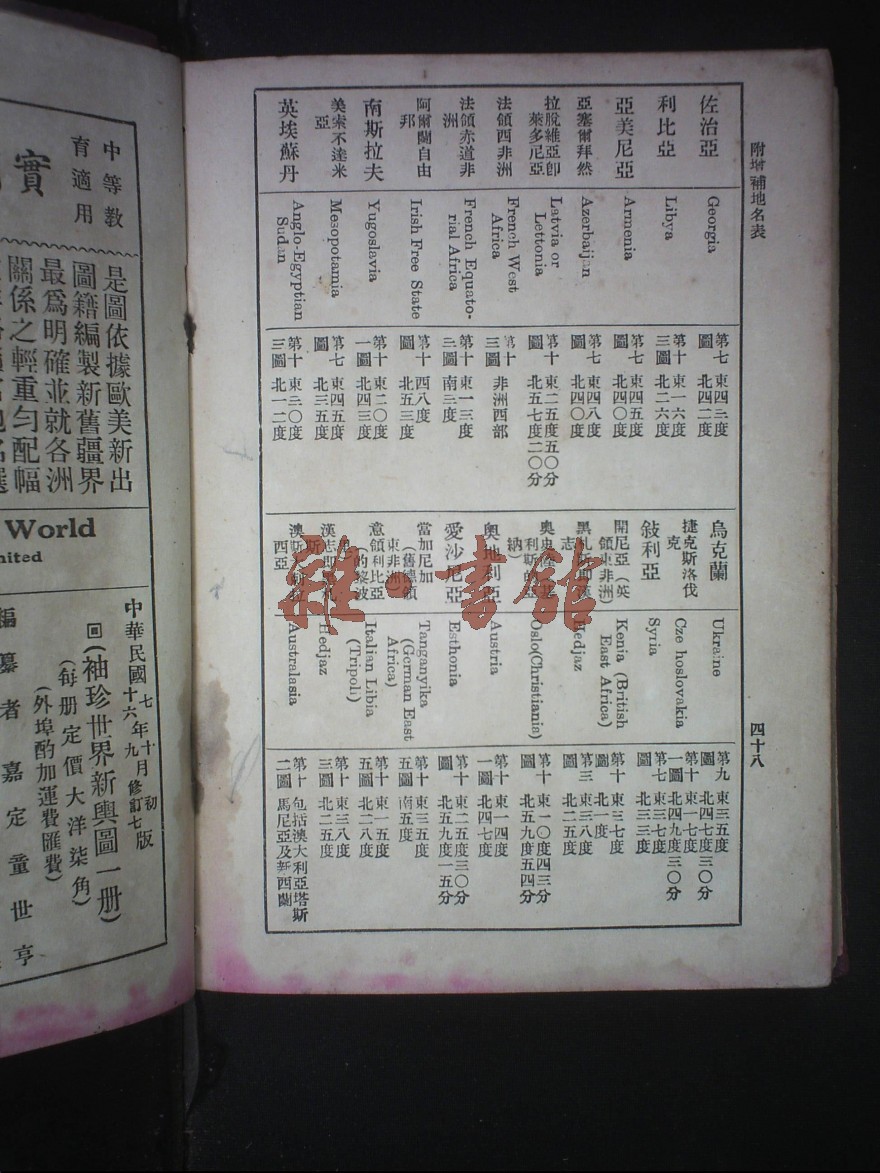 附增補地名表
四十八
佐治亞 Georgia 第七圖 東四三度 北四二度
利比亞 Libya 第十三圖 東一六度 北二六度
亞美尼亞 Armenia 第七圖 東四五度 北四〇度
亞塞爾拜然 Azerbaijan 第七圖 東四八度 北四〇度
拉脫維亞卽萊多尼亞 Latvia or Lettonia 第十圖 東二五度五〇分 北五七度二〇分
法領西非洲 French West Africa 第十三圖 非洲西部
法領赤道非洲 French Equatorial Africa 第十三圖 東一三度 南三度
阿爾蘭自由邦 Irish Free State 第十圖 西八度 北五三度
南斯拉夫 Yugoslavia 第十一圖 東二〇度 北四三度
美索不達米亞 Mesopotamia 第七圖 東四五度 北三五度
英埃蘇丹 Anglo-Egyptian Sudan 第十三圖 東三〇度 北一二度
烏克蘭 Ukraine 第九圖 東三五度 北四七度三〇分
捷克斯洛伐克 Czechoslovakia 第十一圖 東一七度 北四九度三〇分
敍利亞 Syria 第七圖 東三七度 北三三度
開尼亞（英領東非洲） Kenia (British East Africa) 第十圖 東三七度 北一度
黑札斯卽漢志 Hedjaz 第三圖 東三八度 北二五度
Oslo(Christiania) 第十圖 東一〇度四三分 北五九度五四分
奧地利亞 Austria 第十一圖 東一四度 北四七度
愛沙尼亞 Esthonia 第十圖 東二五度三〇分 北五九度一五分
當加尼加（舊德領東非洲） Tanganyika (German East Africa) 第十五圖 東三五度 南五度
意領利比亞（的黎波里） Italian Libia (Tripoli) 第十五圖 東一五度 北二八度
Hedjaz 第十三圖 東三八度 北二五度
西亞 Australasia 第十二圖 包括澳大利亞塔斯馬尼亞及新西蘭
中等教育適用
實
是圖依據歐美新出
圖籍編製新舊疆界
最爲明確並就各洲
關係之輕重勻配幅
World
中華民國七年十月初版
十六年九月修訂七版
回(袖珍世界新輿圖一册)
(每册定價大洋柒角)
(外埠酌加運費匯費)
編纂者 嘉定童世亨
雜·書館